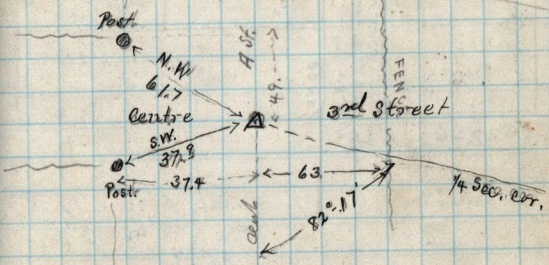 Post.
A St.
N.W.
61.7
49.
FENCE
Centre
3rd Street
S.W.
37.9
Post.
37.4
63
1/4 Sec. cor.
82°-17'